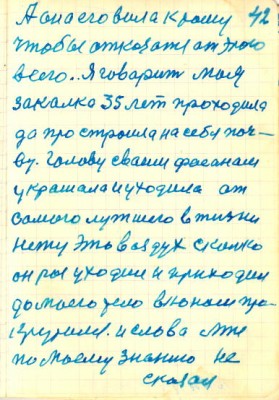 А она его вила к рошу 42
чтобы отказатся от этого
всего.. Я говорит моя
закалка 35 лет проходила
да простроила на себя поч-
ву. Голову своим фасанам
украшала и уходила от
самого лутшего в жизни
нету Это воздух сколко
он раз уходил и приходил
до моего тело в юнаш про-
и слова мне
по моему знанию не
сказал